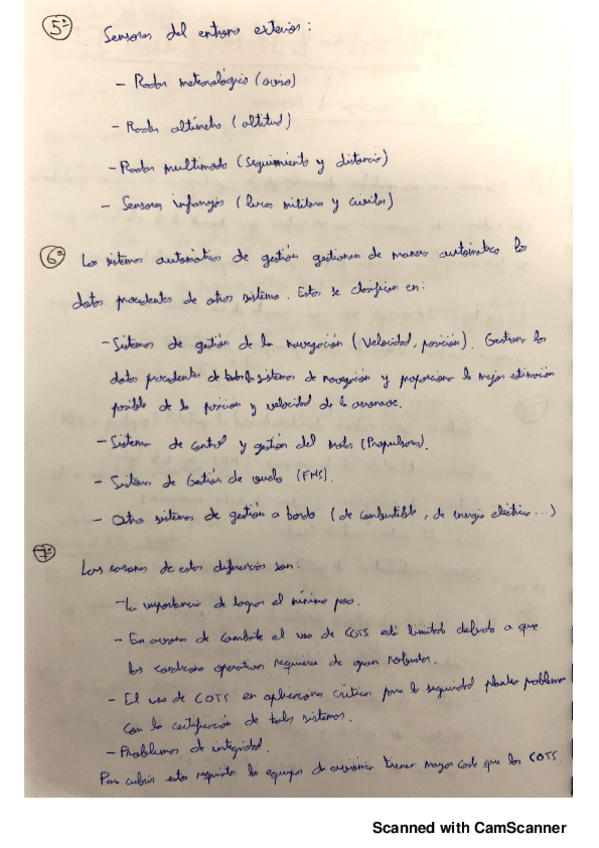 5ª
Sensores del entorno exterior:
- Radar meteorológico (aviso)
- Radar altímetro (altitud)
- Radar multimodo (seguimiento y distancia)
- Sensores infrarrojos (luces militares y civiles)
6ª Los sistemas automáticos de gestión gestionan de manera automática los
datos procedentes de otros sistemas. Estos se clasifican en:
- Sistemas de gestión de la navegación (Velocidad, posición). Gestiona los
datos procedentes de todos los sistemas de navegación y proporciona la mejor estimación
posible de la posición y velocidad de la aeronave.
- Sistema de control y gestión del motor (Propulsores).
- Sistema de Gestión de vuelo (FMS).
- Otros sistemas de gestión a bordo (de combustible, de energía eléctrica...)
7ª
Las razones de estas diferencias son:
- La importancia de lograr el mínimo peso.
- En aviones de combate el uso de COTS está limitado debido a que
las condiciones operativas requieren de gran robustez.
- El uso de COTS en aplicaciones críticas para la seguridad plantea problemas
con la certificación de tales sistemas.
- Problemas de integridad.
Para cubrir estos requisitos los equipos de aviónica tienen mayor coste que los COTS.
Scanned with CamScanner